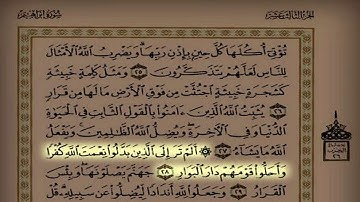 الجزء الثالث عشر
سورة ابراهيم
تُؤْتِي أُكُلَهَا كُلَّ حِينٍ بِإِذْنِ رَبِّهَا وَيَضْرِبُ اللَّهُ الْأَمْثَالَ
لِلنَّاسِ لَعَلَّهُمْ يَتَذَكَّرُونَ ٢٥ وَمَثَلُ كَلِمَةٍ خَبِيثَةٍ
كَشَجَرَةٍ خَبِيثَةٍ اجْتُثَّتْ مِن فَوْقِ الْأَرْضِ مَا لَهَا مِن قَرَارٍ
٢٦ يُثَبِّتُ اللَّهُ الَّذِينَ ءَامَنُوا بِالْقَوْلِ الثَّابِتِ فِي الْحَيَوٰةِ
الدُّنْيَا وَفِي الْآخِرَةِ وَيُضِلُّ اللَّهُ الظَّٰلِمِينَ وَيَفْعَلُ
اللَّهُ مَا يَشَاءُ ٢٧ ۞ أَلَمْ تَرَ إِلَى الَّذِينَ بَدَّلُوا نِعْمَتَ اللَّهِ كُفْرًا
وَأَحَلُّوا قَوْمَهُمْ دَارَ الْبَوَارِ ٢٨ جَهَنَّمَ يَصْلَوْنَهَا وَبِئْسَ
الْقَرَارُ ٢٩ وَجَعَلُوا لِلَّهِ أَندَادًا لِّيُضِلُّوا عَن سَبِيلِهِ قُلْ